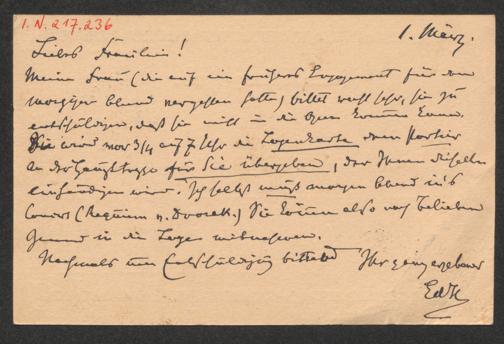 I.N. 217.236
1. März.
Liebes Fräulein!
Meine Frau (die auf ein früheres Engagement für den
morgigen Abend vergessen hatte) bittet recht sehr, sie zu
entschuldigen, daß sie nicht in die Oper kommen kann.
Sie wird vor 3/4 auf 7 Uhr die Logenkarte dem Portier
an der Haupttreppe für Sie übergeben, der Ihnen dieselbe
einhändigen wird. Ich selbst muß morgen Abend in's
Concert (Requiem v. Dvorak.) Sie können also nach Belieben
Jemand in die Loge mitnehmen.
Nochmals um Entschuldigung bittend Ihr ganz ergebener
EdH